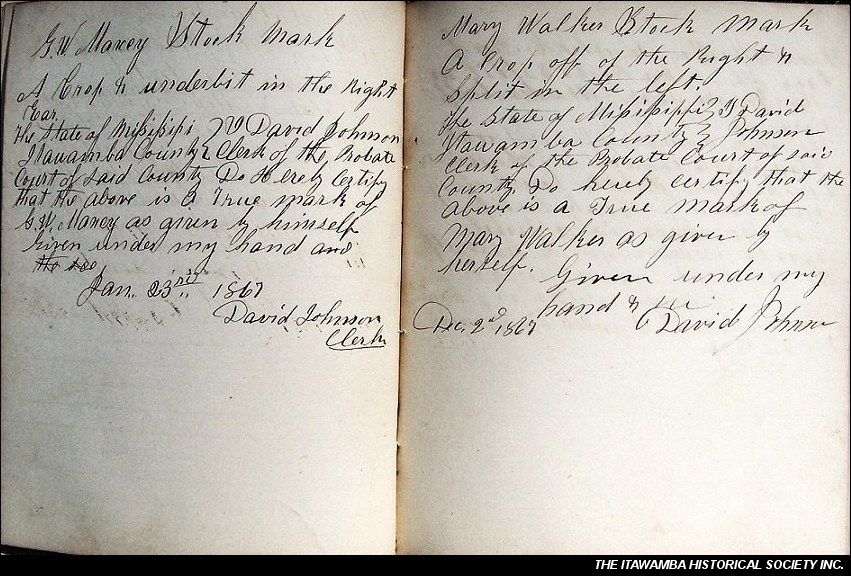 G.W. Maxey Stock Mark
A Crop & underbit in the Right
Ear
The State of Mississippi } I David Johnson
Itawamba County } Clerk of the Probate
Court of Said County Do Hereby Certify
that the above is a True mark of
G.W. Maxey as given by himself
Given under my hand and
Jan. 23rd 1867
David Johnson
Clerk
Mary Walker Stock Mark
A Crop off of the Right &
Split in the left.
The State of Mississippi } I David
Itawamba County } Johnson
Clerk of the Probate Court of said
County Do hereby certify that the
above is a True mark of
Mary Walker as given by
herself. Given under my
hand &
Dec. 2nd 1867 David Johnson
THE ITAWAMBA HISTORICAL SOCIETY INC.